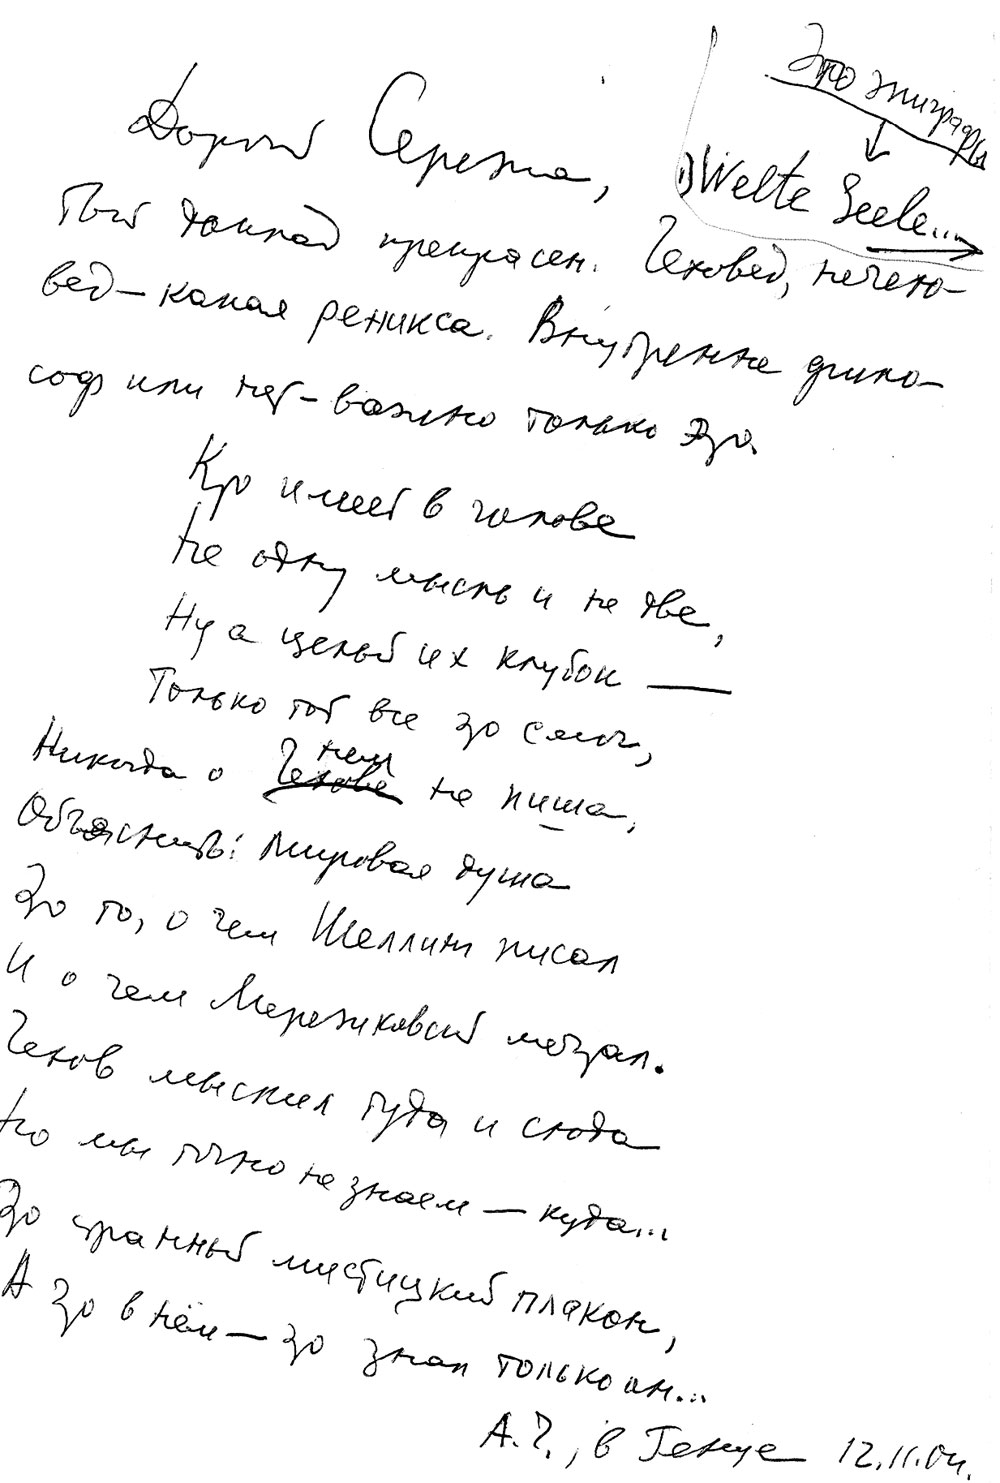 Это эпиграфы
1) Welte Seele...
Дорогой Сережа,
Твой доклад прекрасен. Чеховед, нечехо-
вед – какая реникса. Внутренне фило-
соф или нет – важно только это.
Кто имеет в голове
Не одну мысль и не две,
Ну а целый их клубок —
Только тот все это смог,
Никогда о Чехове нем не пиша,
Объяснить: Мировая душа
Это то, о чем Шеллинг писал
И о чем Мережковский мечтал.
Чехов мыслил туда и сюда
Но мы точно не знаем — куда...
Это странный мистицкий плакон,
А что в нём — это знал только он...
А.Ч., в Генуе 12.11.04.